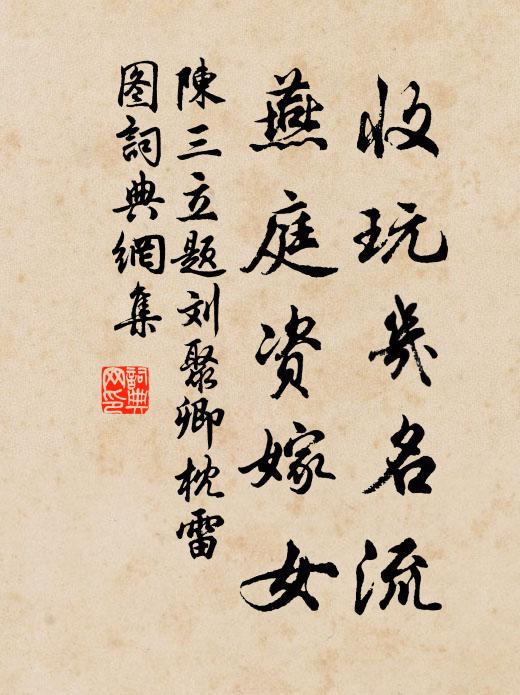 收玩岁名流
燕庭资嫁女
陳三立题刘聚卿枕雷
图詞典網集
詞典
网印